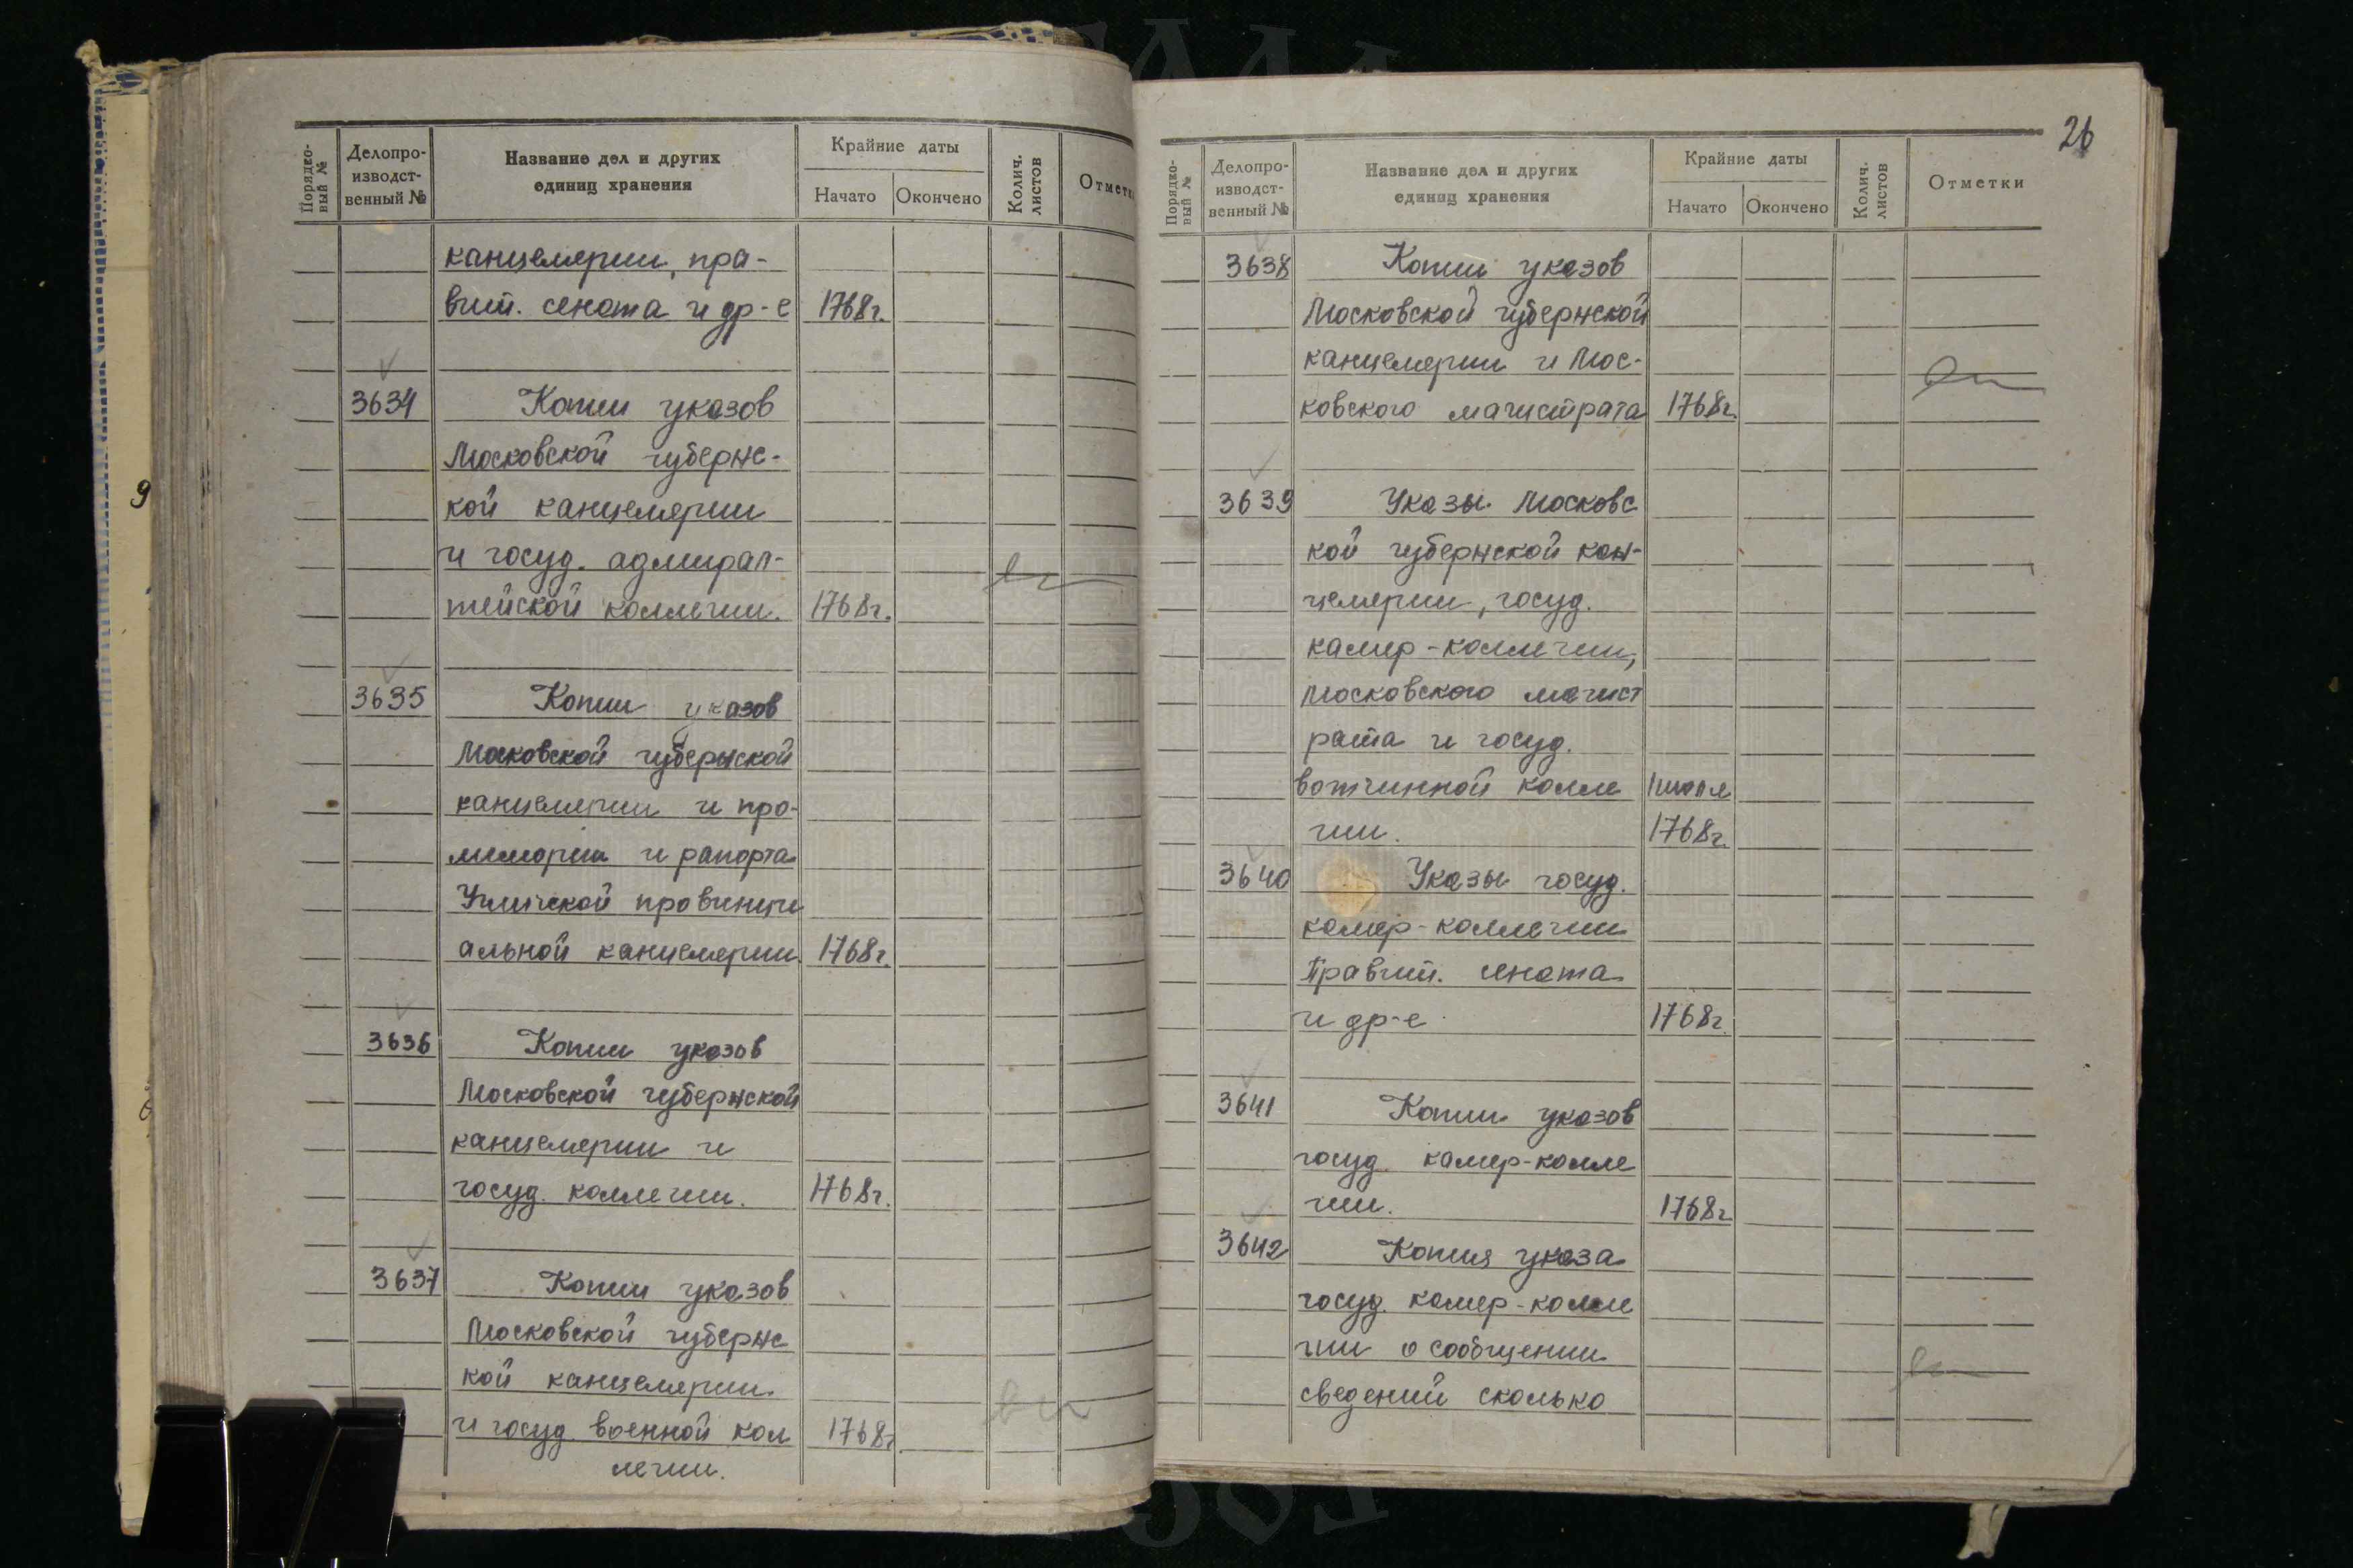 Порядко-
вый №
Делопро-
изводст-
венный №
Название дел и других
единиц хранения
Крайние даты
Начато
Окончено
Колич.
листов
Отметки
канцелярии, пра-
вит. сената и др-е 1768г.
3634 Копии указов
Московской губернс-
кой канцелярии
и госуд. адмирал-
тейской коллегии. 1768г.
3635 Копии указов
Московской губернской
канцелярии и про-
мемории и рапорта
Угличской провинци
альной канцелярии 1768г.
3636 Копии указов
Московской губернской
канцелярии и
госуд. коллегии. 1768г.
3637 Копии указов
Московской губернс
кой канцелярии
и госуд. военной кол 1768г
легии.
26
Порядко-
вый №
Делопро-
изводст-
венный №
Название дел и других
единиц хранения
Крайние даты
Начато
Окончено
Колич.
листов
Отметки
3638 Копии указов
Московской губернской
канцелярии и Мос-
ковского магистрата 1768г.
3639 Указы Московс
кой губернской кан-
целярии, госуд.
камер-коллегии,
Московского магист
рата и госуд.
вотчинной колле 1 июля
гии. 1768г.
3640 Указы госуд.
камер-коллегии
Правит. сената
и др-е 1768г.
3641 Копии указов
госуд. камер-колле
гии. 1768г
3642 Копия указа
госуд. камер-колле
гии о сообщении
сведений сколько
9